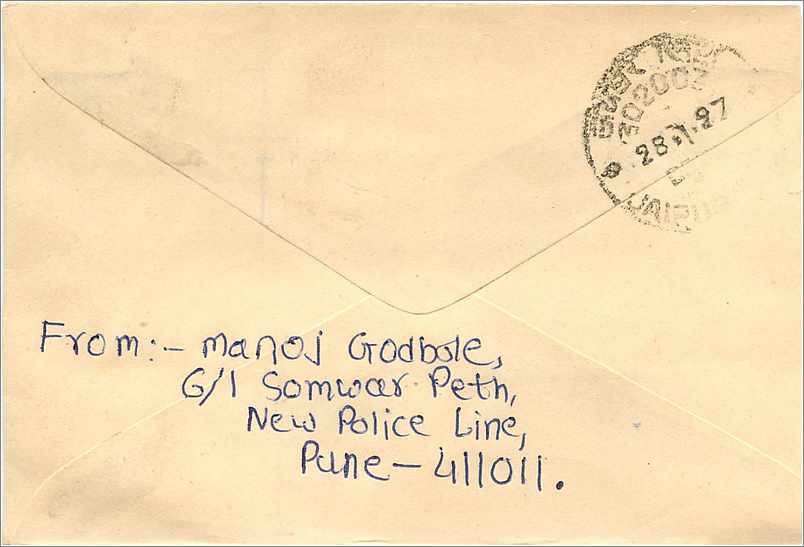 जयपुर
302003
28.1.97
JAIPUR
From:- Manoj Godbole,
G/1 Somwar Peth,
New Police Line,
Pune - 411011.